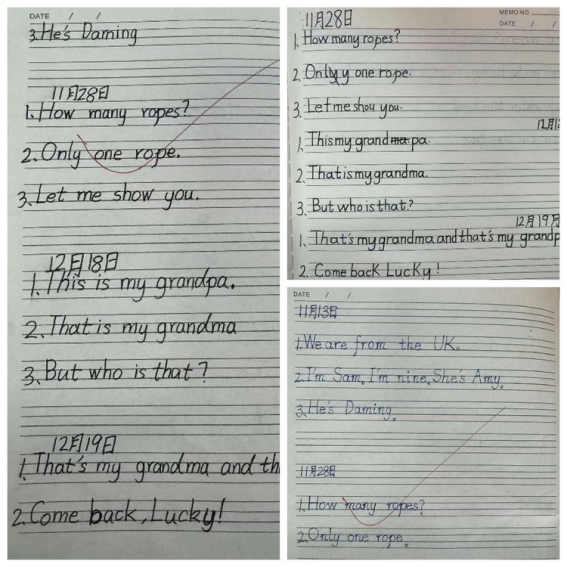 DATE / /
3. He's Daming
11月28日
1. How many ropes?
2. Only one rope.
3. Let me show you.
12月18日
1. This is my grandpa.
2. That is my grandma
3. But who is that?
12月19日
1. That's my grandma and th
2. Come back, Lucky!
MEMO NO.
11月28日
DATE / /
1. How many ropes?
2. Only y one rope.
3. Let me shou you.
12月1
1. This my grand ma pa.
2. That is my grandma.
3. But who is that?
12月19月
1. That's my grandma and that's my grandp
2. Come back Lucky!
DATE / /
11月13日
1. We are from the UK.
2. I'm Sam. I'm nine. She's Amy.
3. He's Daming.
11月28日
1. How many ropes?
2. Only one rope.